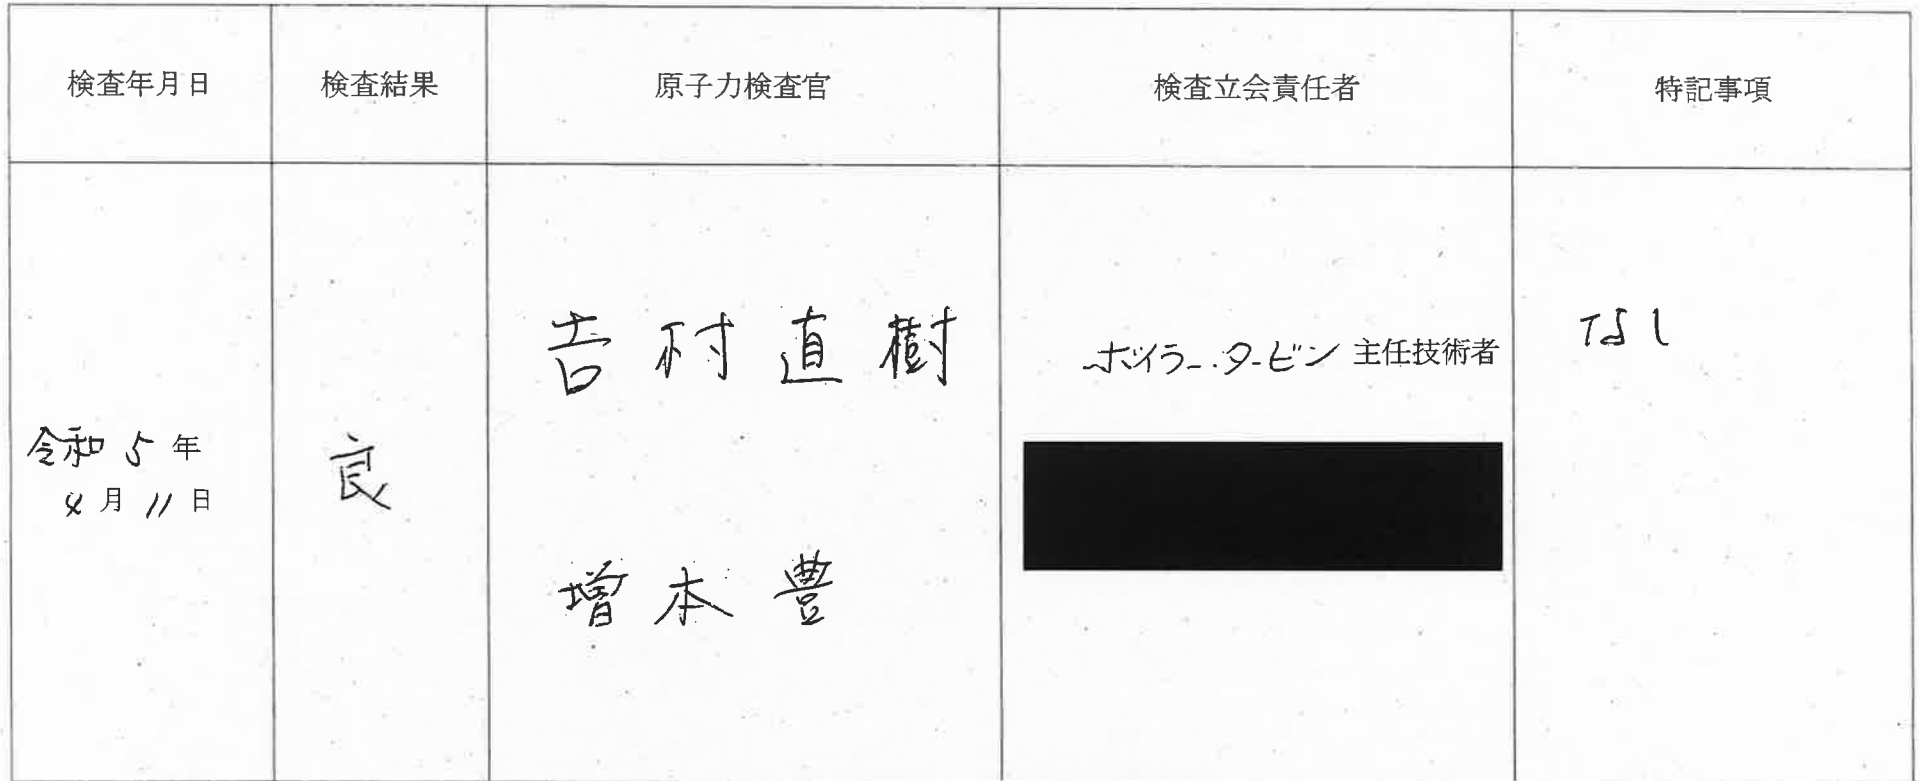 検査年月日 検査結果 原子力検査官 検査立会責任者 特記事項
令和5年
4月11日
良
吉村直樹
増本豊
ボイラー・タービン主任技術者
なし